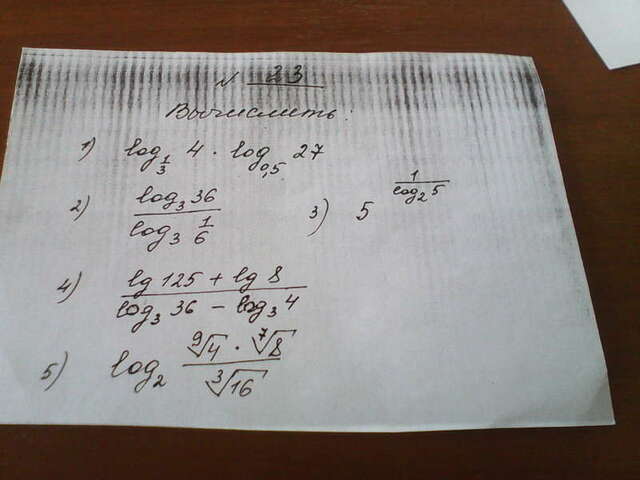 N 23
Вычислить:
1) log_{1/3} 4 · log_{0,5} 27
2) \frac{log_3 36}{log_3 \frac{1}{6}} 3) 5^{\frac{1}{log_2 5}}
4) \frac{lg 125 + lg 8}{log_3 36 - log_3 4}
5) log_2 \frac{\sqrt[9]{4} · \sqrt[7]{8}}{\sqrt[3]{16}}